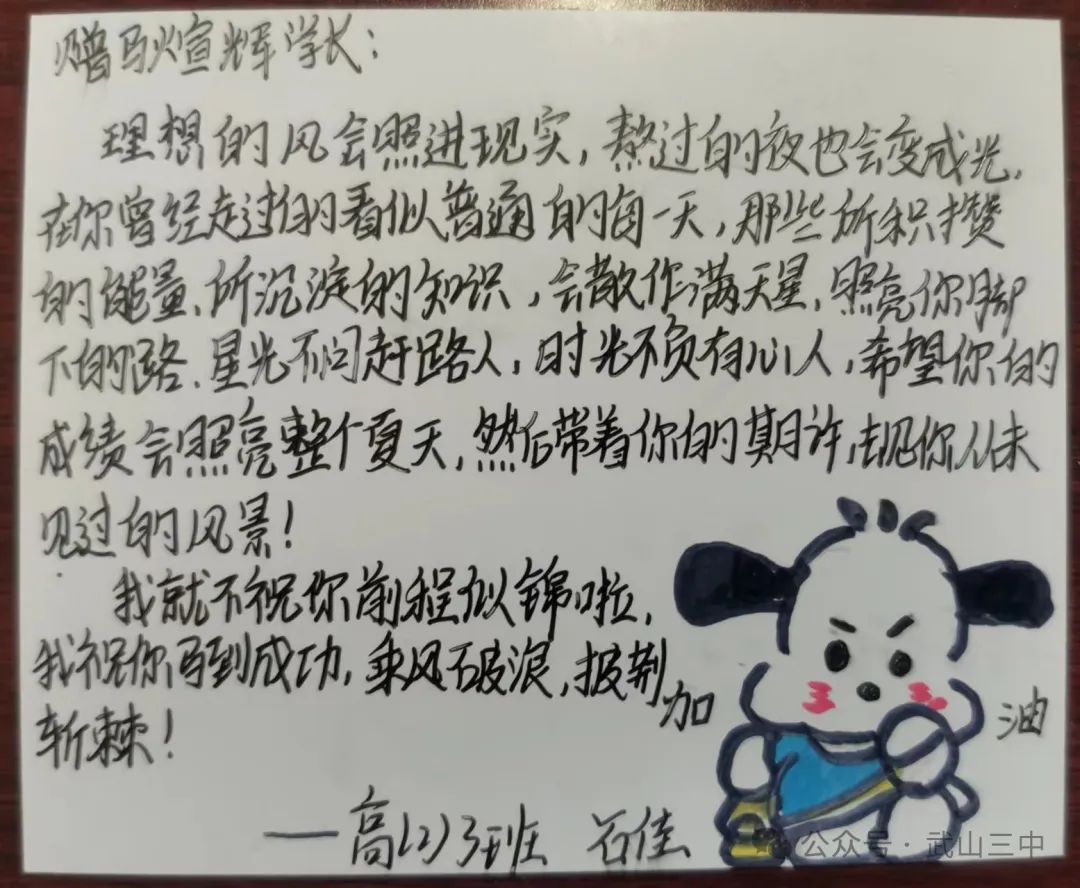 赠马煊辉学长：
理想的风会照进现实，熬过的夜也会变成光，
在你曾经走过的看似普通的每一天，那些所积攒
的能量、所沉淀的知识，会散作满天星，照亮你脚
下的路、星光不问赶路人，时光不负有心人，希望你的
成绩会照亮整个夏天，然后带着你的期许，去见你从未
见过的风景！
我就不祝你前程似锦啦，
我祝你马到成功，乘风破浪，披荆
斩棘！
加 油
——高(2)3班 石佳
公众号·武山三中